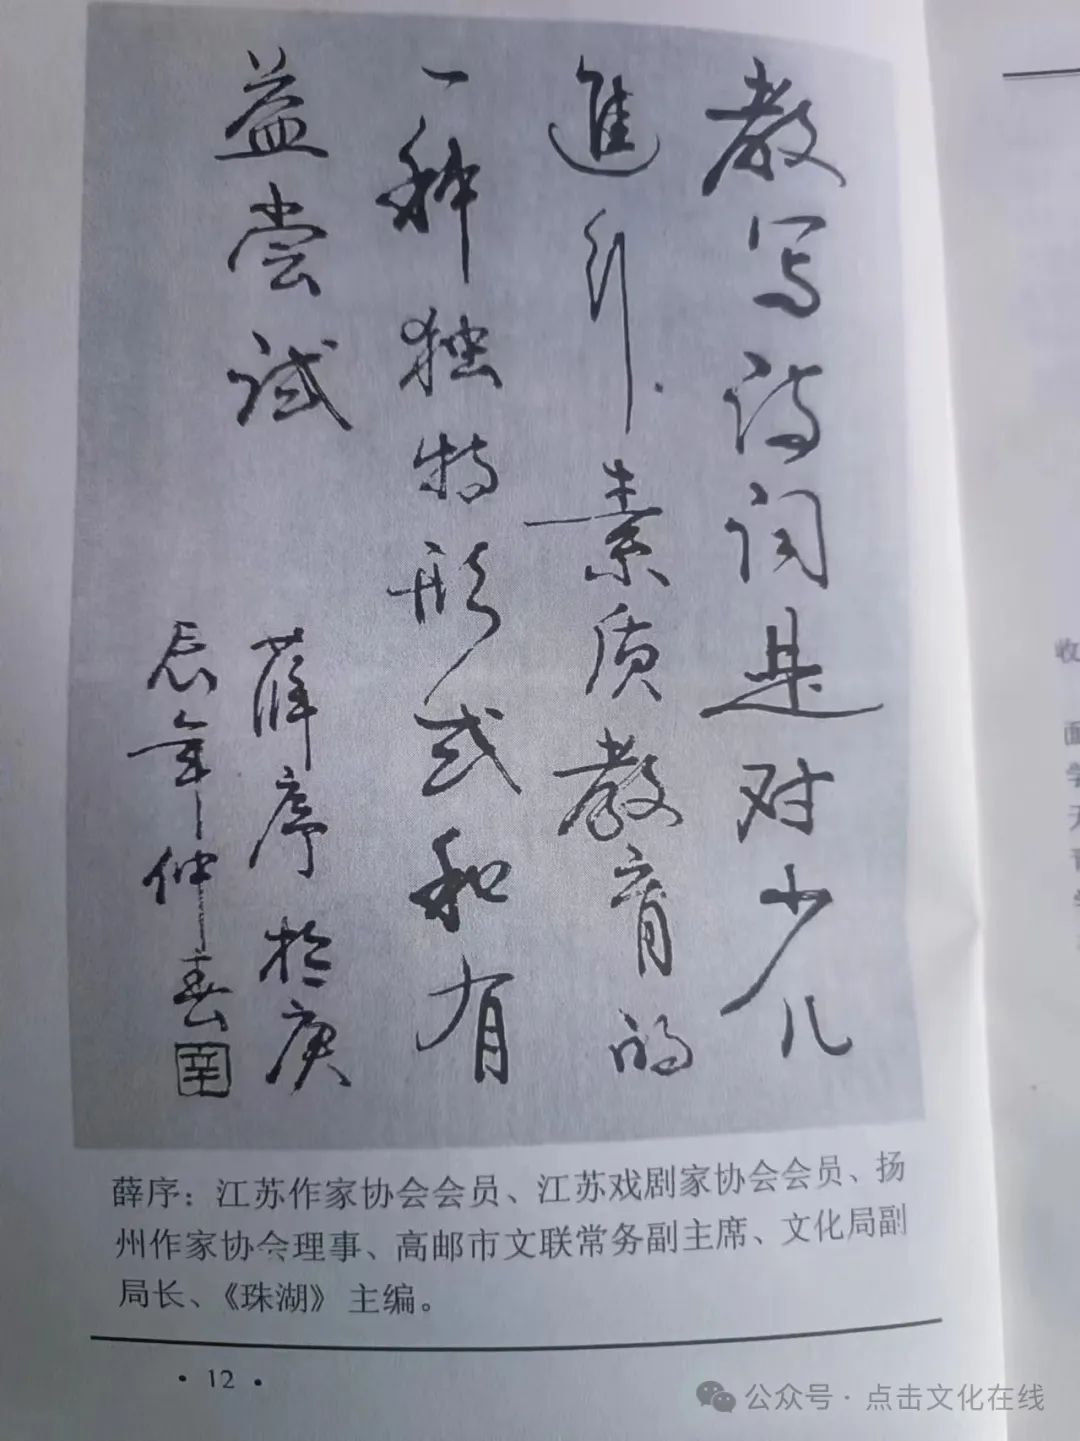 教写诗词是对少儿
進行素质教育的
一种独特形式和有
益尝试
薛序於庚
辰年仲春
薛序：江苏作家协会会员、江苏戏剧家协会会员、扬
州作家协会理事、高邮市文联常务副主席、文化局副
局长、《珠湖》主编。
·12·
收
面
学
公众号·点击文化在线